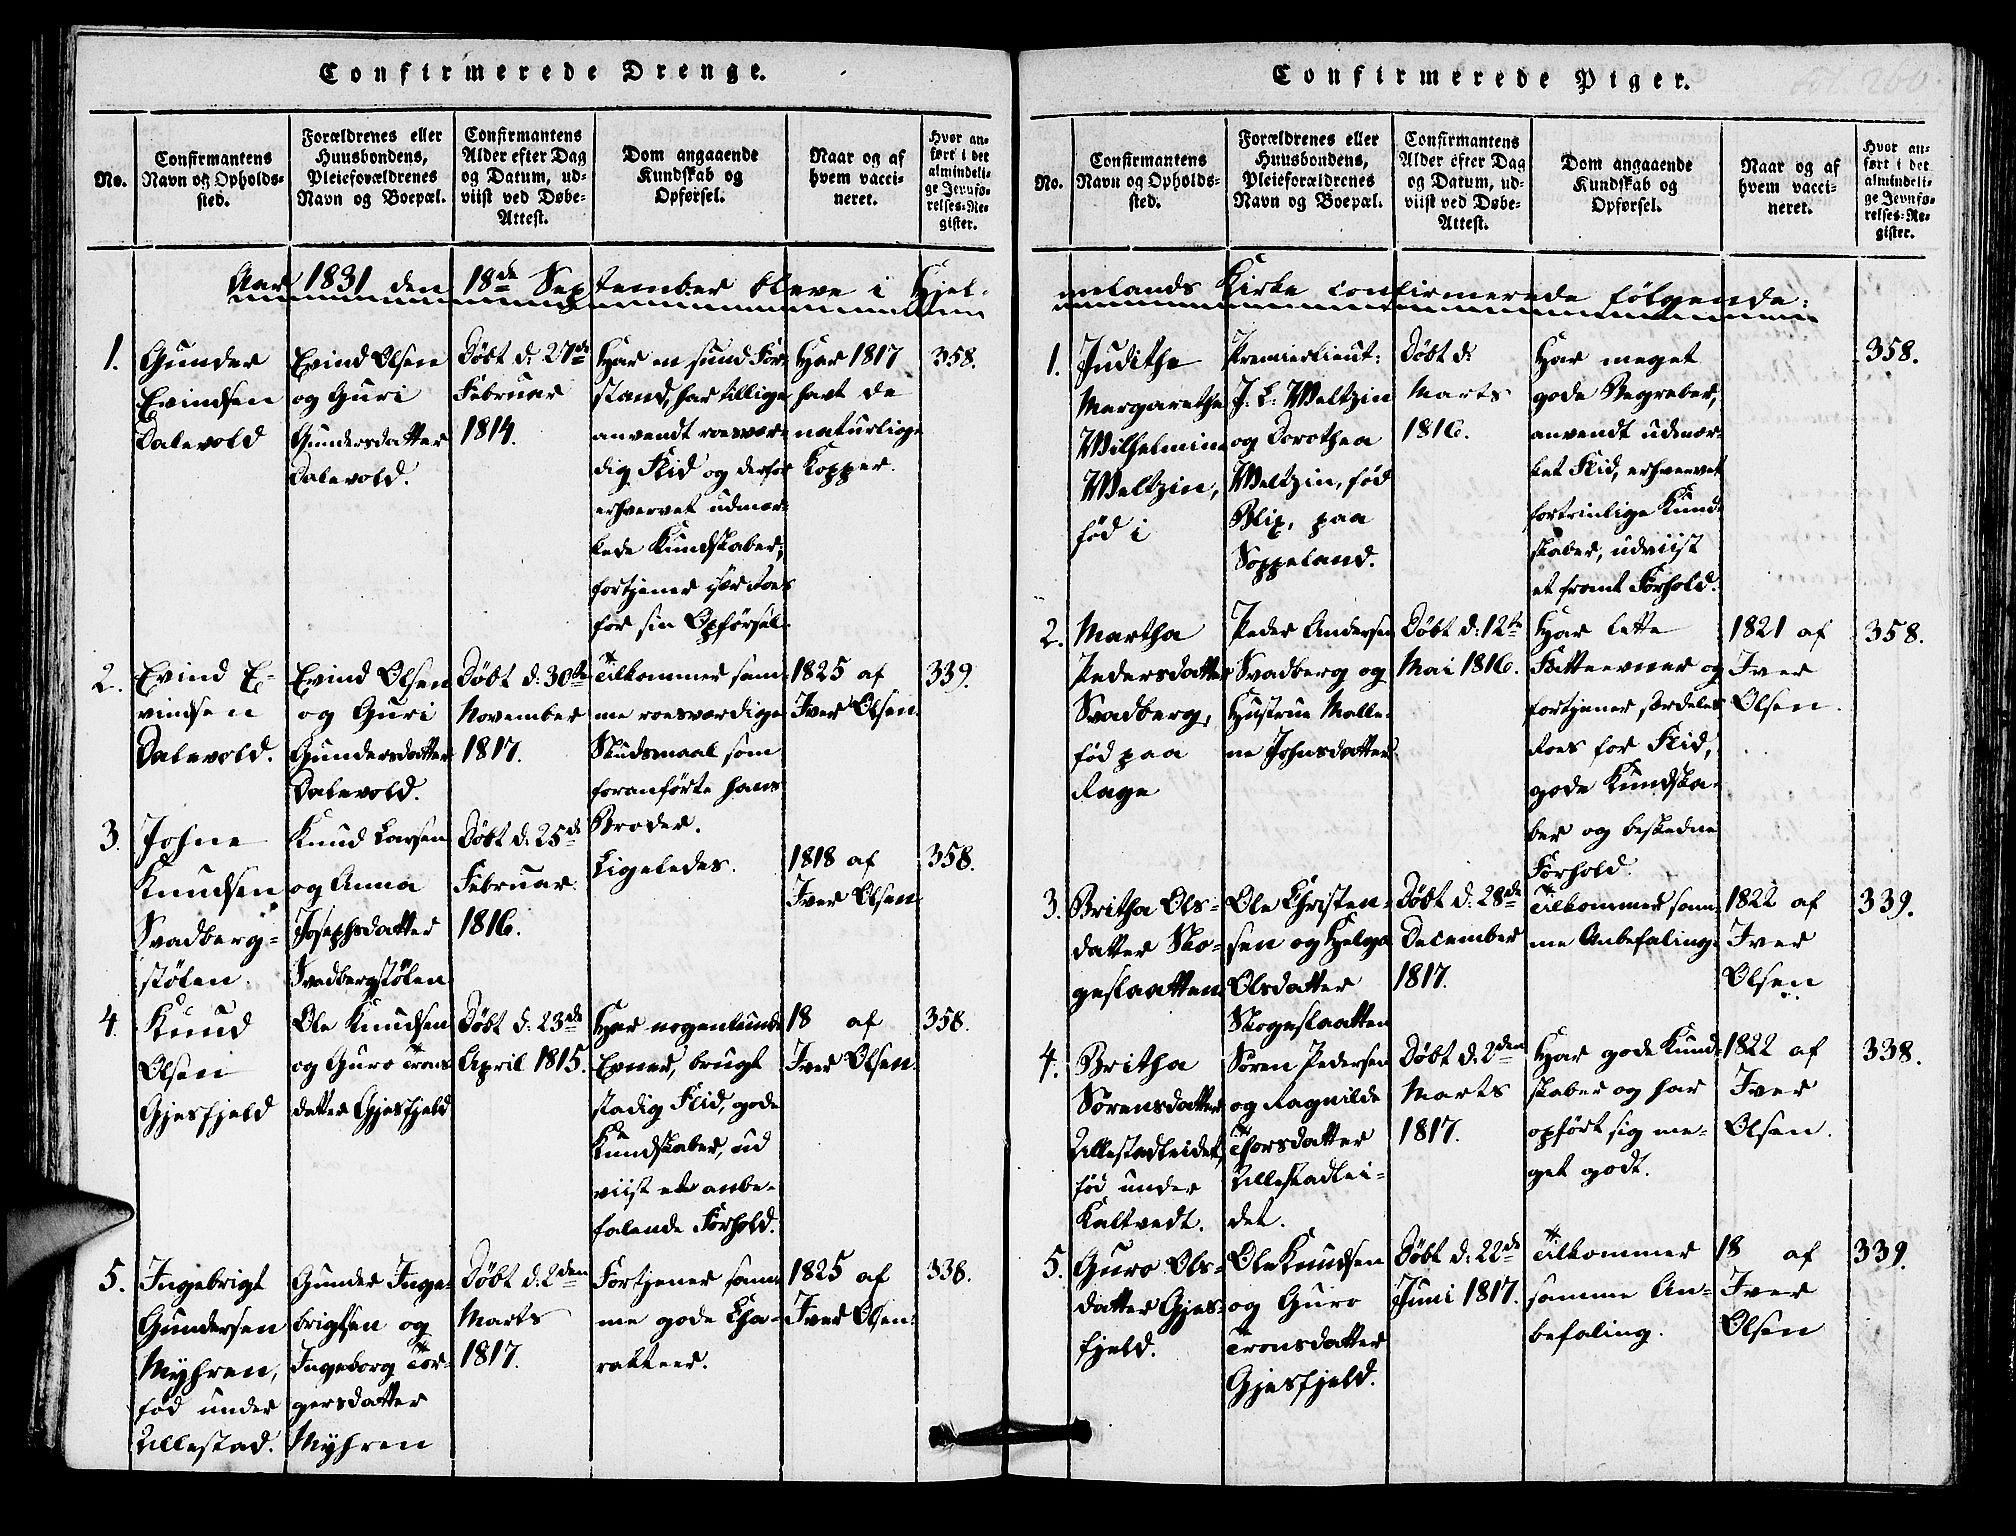 Confirmerede Drenge.
No.
Confirmantens
Navn og Opholds-
sted.
Forældrenes eller
Huusbondens,
Pleieforældrenes
Navn og Boepæl.
Confirmantens
Alder efter Dag
og Datum, ud-
viist ved Døbe-
Attest.
Dom angaaende
Kundskab og
Opførsel.
Naar og af
hvem vacci-
neret.
Hvor an-
ført i det
almindeli-
ge Jevnfø-
relses-Re-
gister.
Aar 1831 den 18de September bleve i Hjel-
1.
Gunder
Evindsen
Dalevold
Evind Olsen
og Guri
Gundersdatter
Dalevold.
Døbt d: 27de
Februar
1814.
Har en sund For-
stand, har tillige
anvendt roesvær-
dig Flid og derfor
erhvervet udmær-
kede Kundskaber;
fortjener især Roes
for sin Opførsel.
Har 1817
havt de
naturlige
Kopper.
358.
2.
Evind E-
vindsen
Dalevold.
Evind Olsen
og Guri
Gundersdatter
Dalevold.
Døbt d: 30te
November
1817.
Tilkommer sam-
me roesværdige
Skudsmaal som
foranførte hans
Broder.
1825 af
Iver Olsen.
339.
3.
Johne
Knudsen
Svadberg-
stølen.
Knud Larsen
og Anna
Josephsdatter
Svadbergstølen
Døbt d: 25de
Februar.
1816.
Ligeledes.
1818 af
Iver Olsen.
358.
4.
Knud
Olsen
Gjesfjeld
Ole Knudsen
og Guro Trons
datter Gjesfjeld
Døbt d: 23de
April 1815.
Har nogenlunde
Evner, brugt
stadig Flid, gode
Kundskaber, ud
viist et anbe-
falende Forhold.
18 af
Iver Olsen.
358.
5.
Ingebrigt
Gundersen
Myhren,
fød under
Ullestad.
Gunder Inge-
brigtsen og
Ingeborg Tor-
gersdatter
Myhren
Døbt d: 2den
Marts
1817.
Fortjener sam-
me gode Cha-
rakteer.
1825 af
Iver Olsen.
338.
Confirmerede Piger.
No.
Confirmantens
Navn og Opholds-
sted.
Forældrenes eller
Huusbondens,
Pleieforældrenes
Navn og Boepæl.
Confirmantens
Alder efter Dag
og Datum, ud-
viist ved Døbe-
Attest.
Dom angaaende
Kundskab og
Opførsel.
Naar og af
hvem vacci-
neret.
Hvor an-
ført i det
almindeli-
ge Jevnfø-
relses-Re-
gister.
melands Kirke confirmerede følgende:
1.
Judithe
Margarethe
Wilhelmine
Weltzin,
fød i
Premierlieut:
J. L. Weltzin
og Dorothea
Weltzin, fød
Blix, paa
Soppeland.
Døbt d:
Marts
1816.
Har meget
gode Begreber,
anvendt udmær-
ket Flid, erhvervet
fortrinlige Kund-
skaber, udviist
et fromt Forhold.
358.
2.
Martha
Pedersdatter
Svadberg,
fød paa
Rage
Peder Andersen
Svadberg og
Hustrue Malle-
ne Johnsdatter.
Døbt d: 12te
Mai 1816.
Har lette
Fatteevner og
fortjener særdeles
Roes for Flid,
gode Kundska-
ber og beskedne
Forhold.
1821 af
Iver
Olsen.
358.
3.
Britha Ols-
datter Sko-
geslaatten
Ole Christen-
sen og Helga
Olsdatter
Skogeslaatten
Døbt d: 28de
December
1817.
Tilkommer sam-
me Anbefaling.
1822 af
Iver
Olsen
339.
4.
Britha
Sørensdatter
Ullestadleidet,
fød under
Kaltvedt.
Søren Pedersen
og Ragnilde
Thorsdatter
Ullestadlei-
det.
Døbt d: 2den
Marts
1817.
Har gode Kund-
skaber og har
opført sig me-
get godt.
1822 af
Iver
Olsen.
338.
5.
Guro Ols-
datter Gjes-
fjeld.
Ole Knudsen
og Guro
Tronsdatter
Gjesfjeld.
Døbt d: 22de
Juni 1817.
Tilkommer
samme An-
befaling.
18 af
Iver
Olsen
339.